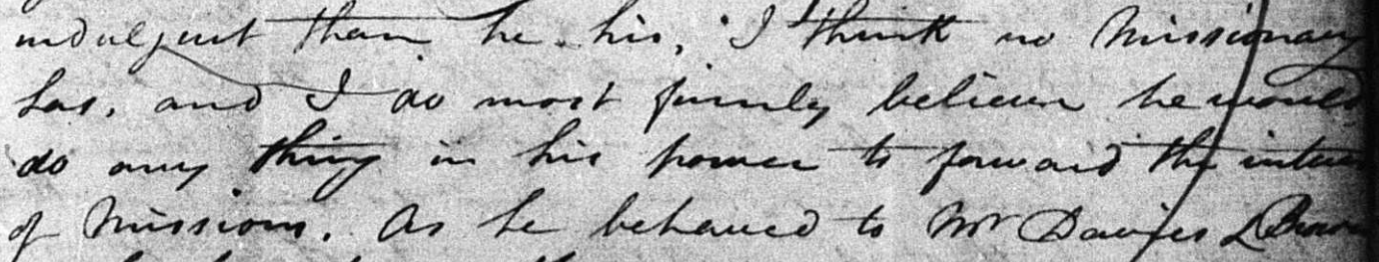 indulgent than he his, I think no Missionary
has, and I do most firmly believe he would
do any thing in his power to forward the
of Missions. As he behaved to Mr Davies &